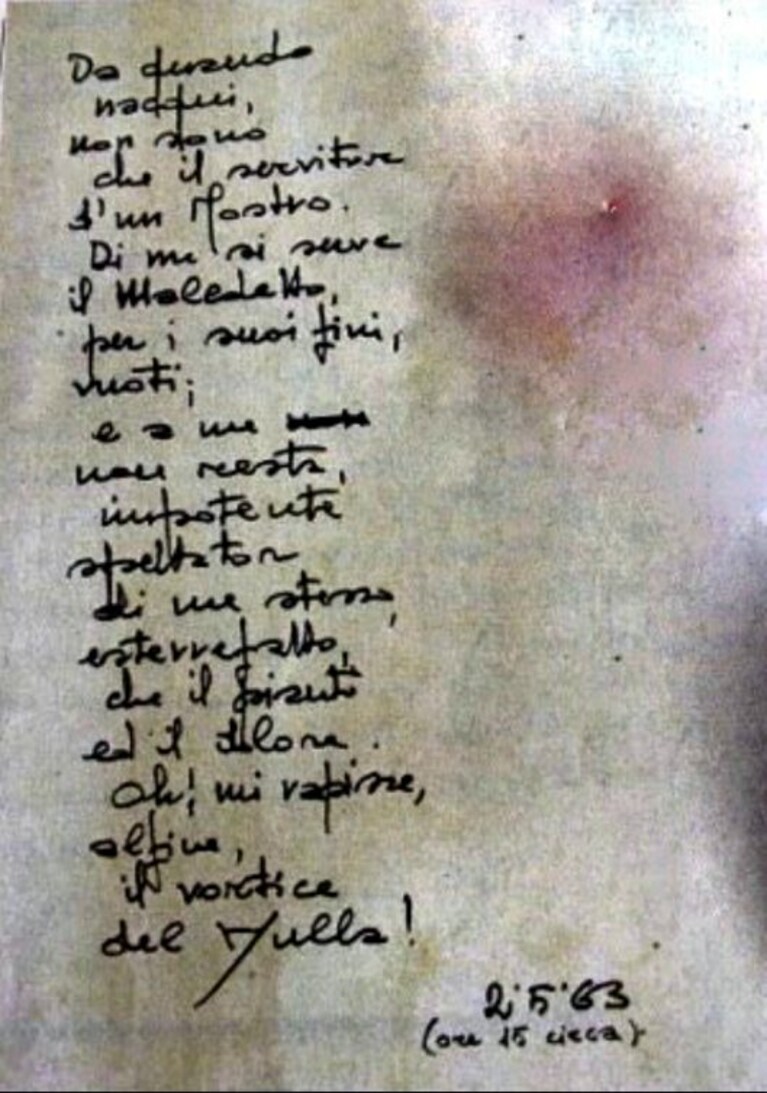 Da quando
nacqui,
non sono
che il servitore
d'un Mostro.
Di me si serve
il Maledetto,
per i suoi fini,
vuoti;
e a me
non resta,
impotente
spettator
di me stesso,
esterrefatto,
che il
ed il dolore.
Oh! mi rapisse,
alfine,
il vortice
del Nulla!
2.5.63
(ore 15 circa)